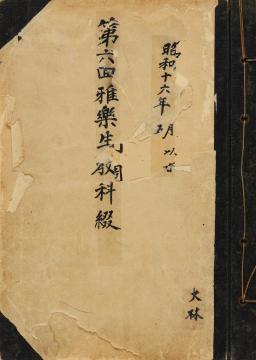 昭和十六年 月 以
第六回雅樂生用教科綴
大林